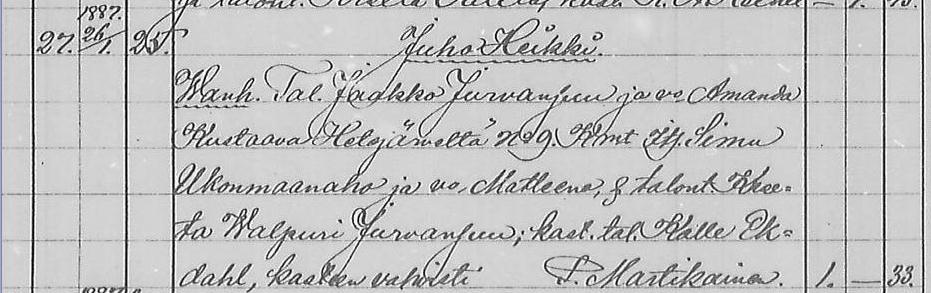 1887.
27. 26/1. 25. Juho Heikki.
Wanh. Tal. Jaakko Jurvanjuu ja vo Amanda
Kustaava Hetejärveltä No 9. Kmt Itj. Simu
Ukonmaanaho ja vo, Matleena, & talont. Kree-
ta Walpuri Jurvanjuu; kast. tal. Kalle Ek-
dahl, kasteen vahvisti P. Martikainen. 1. — 33.